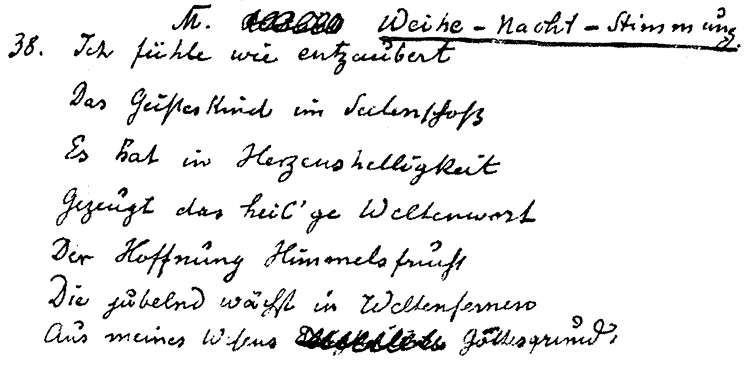 M. Weihe-Nacht-Stimmung.
38. Ich fühle wie entzaubert
Das Geisteskind im Seelenschoß
Es hat in Herzenshelligkeit
Gezeugt das heil'ge Weltenwort
Der Hoffnung Himmelsfrucht
Die jubelnd wächst in Weltenfernen
Aus meines Wesens Gottesgrund.